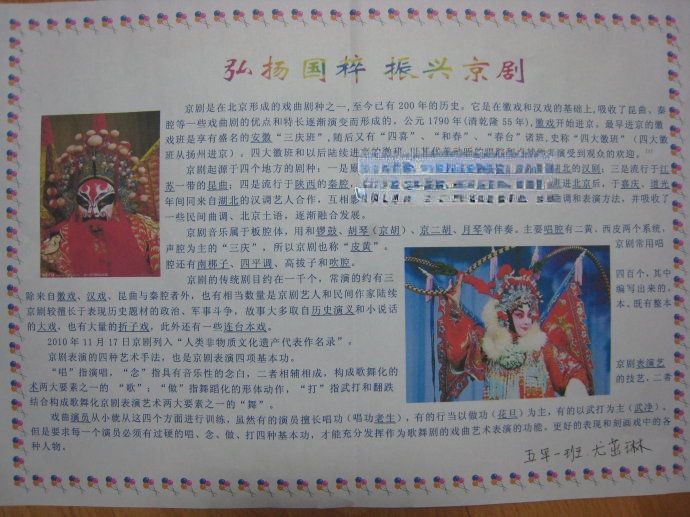 弘扬国粹 振兴京剧
京剧是在北京形成的戏曲剧种之一,至今已有 200 年的历史。它是在徽戏和汉戏的基础上,吸收了昆曲、秦
腔等一些戏曲剧的优点和特长逐渐演变而形成的。公元 1790 年(清乾隆 55 年),徽戏开始进京。最早进京的徽
戏班是享有盛名的安徽“三庆班”,随后又有“四喜”、“和春”、“春台”诸班,史称“四大徽班”(四大徽
班从扬州进京)。四大徽班和以后陆续进京的徽班,以其优美动听的唱腔和
演受到观众的欢迎。
京剧起源于四个地方的剧种:一是
湖北的汉剧;三是流行于江
苏一带的昆曲;四是流行于陕西的秦腔。
进北京后,于嘉庆、道光
年间同来自湖北的汉调艺人合作,互相影
调和表演方法,并吸收了
一些民间曲调、北京土语,逐渐融合发展。
京剧音乐属于板腔体,用和锣鼓、胡琴(京胡)、京二胡、月琴等伴奏。主要唱腔有二黄、西皮两个系统,
声腔为主的“三庆”,所以京剧也称“皮黄”。京剧常用唱
腔还有南梆子、四平调、高拔子和吹腔。
京剧的传统剧目约在一千个,常演的约有三四百个,其中
除来自徽戏、汉戏、昆曲与秦腔者外,也有相当数量是京剧艺人和民间作家陆续编写出来的。
京剧较擅长于表现历史题材的政治、军事斗争,故事大多取自历史演义和小说话本。既有整本
的大戏,也有大量的折子戏,此外还有一些连台本戏。
2010 年 11 月 17 日京剧列入“人类非物质文化遗产代表作名录”。
京剧表演的四种艺术手法,也是京剧表演四项基本功。
“唱”指演唱,“念”指具有音乐性的念白,二者相辅相成,构成歌舞化的京剧表演艺
术两大要素之一的“歌”;“做”指舞蹈化的形体动作,“打”指武打和翻跌的技艺,二者
结合构成歌舞化京剧表演艺术两大要素之一的“舞”。
戏曲演员从小就从这四个方面进行训练,虽然有的演员擅长唱功(唱功老生),有的行当以做功(花旦)为主,有的以武打为主(武净)。
但是要求每一个演员必须有过硬的唱、念、做、打四种基本功,才能充分发挥作为歌舞剧的戏曲艺术表演的功能。更好的表现和刻画戏中的各
种人物。
五年一班